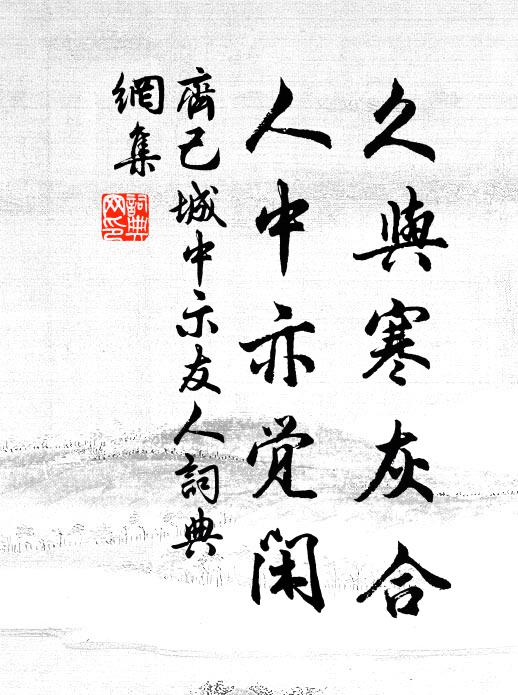 久與寒灰合
人中亦覺閑
齊己城中示友人詞典
網集
詞典
网印